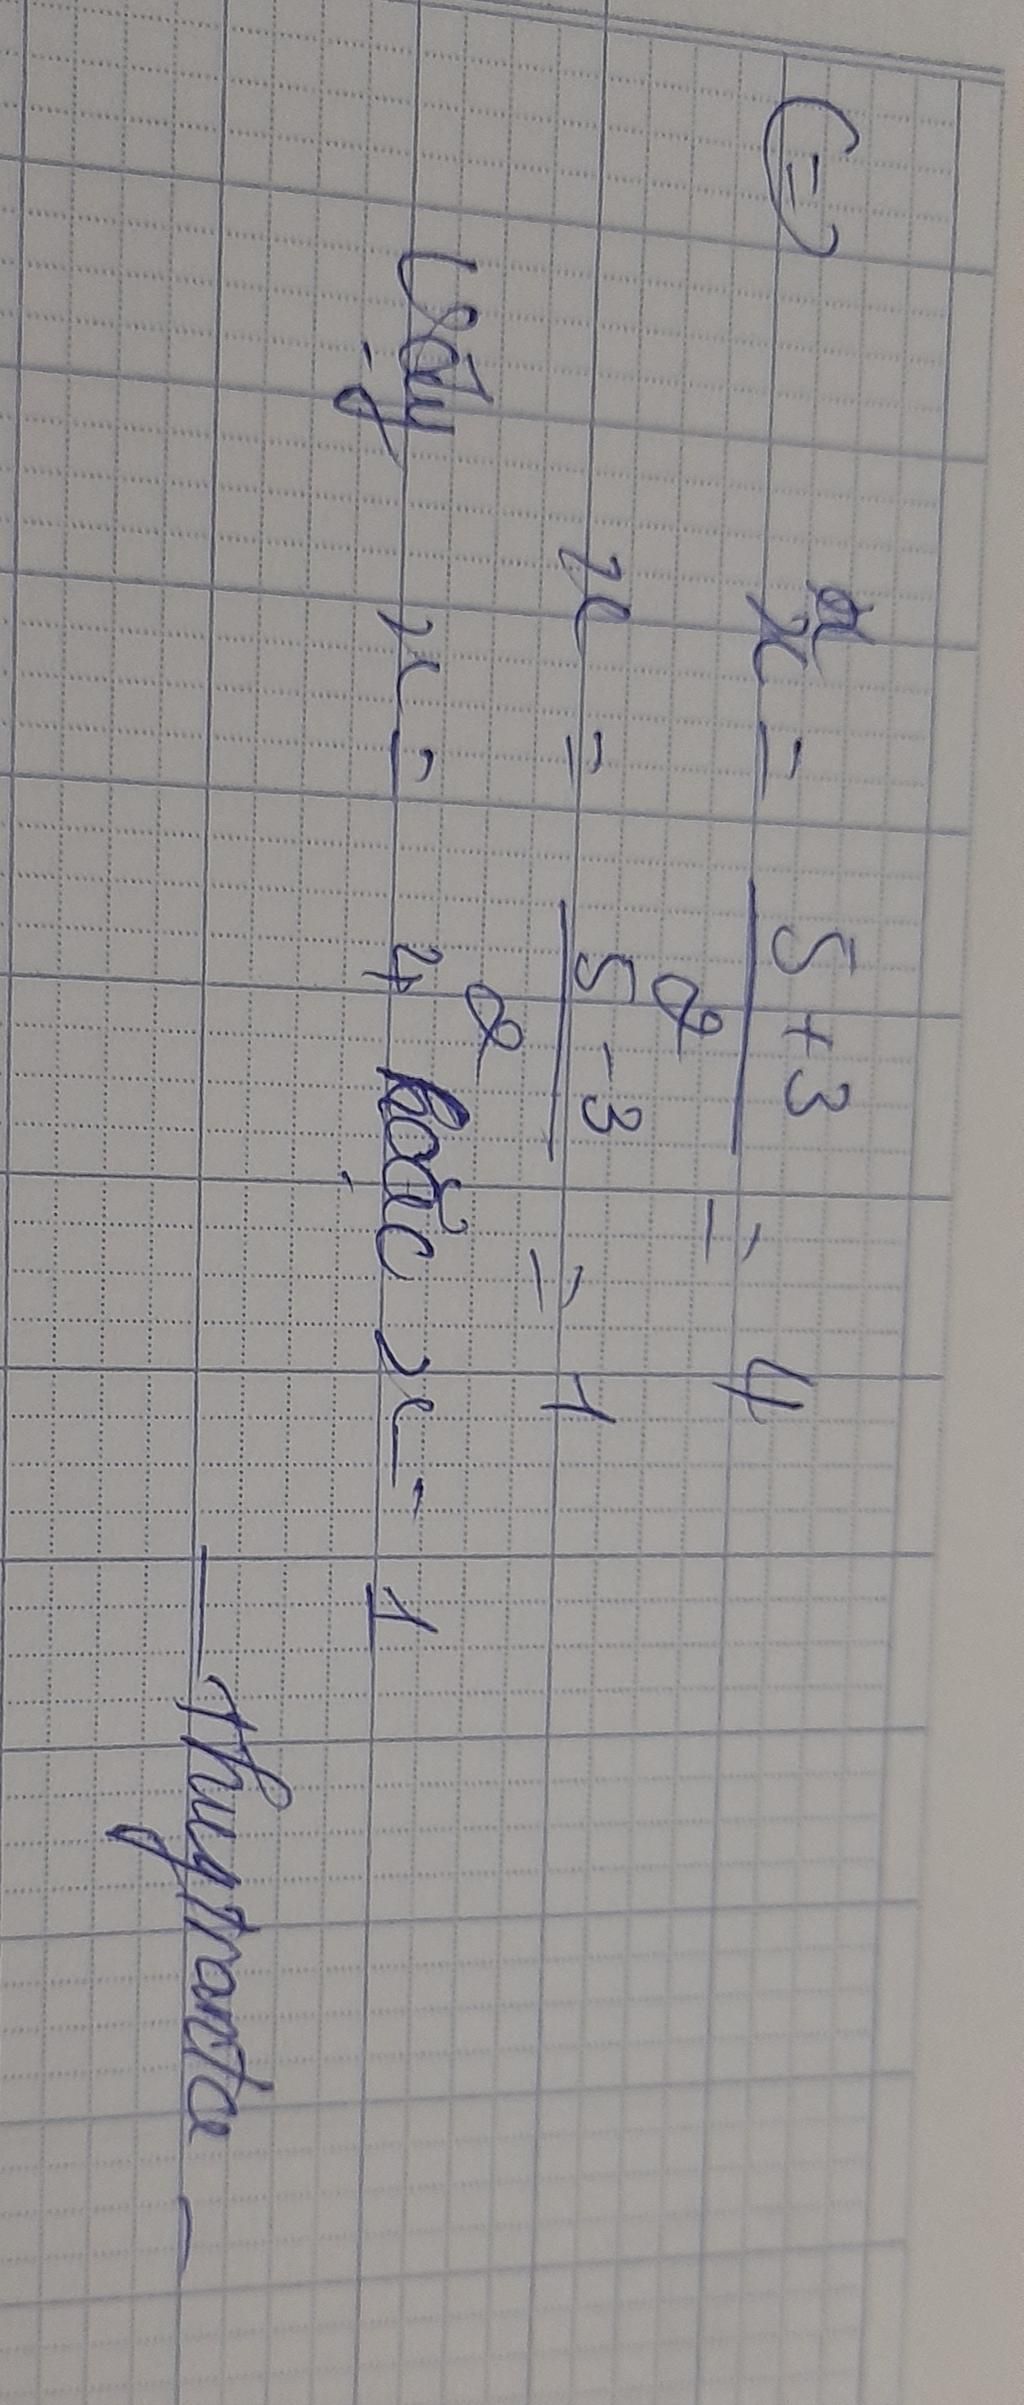 ⇔ x = \frac{5 + 3}{2} = 4
x = \frac{5 - 3}{2} = 1
Vậy x = 4 hoặc x = 1
— Thuytranta —